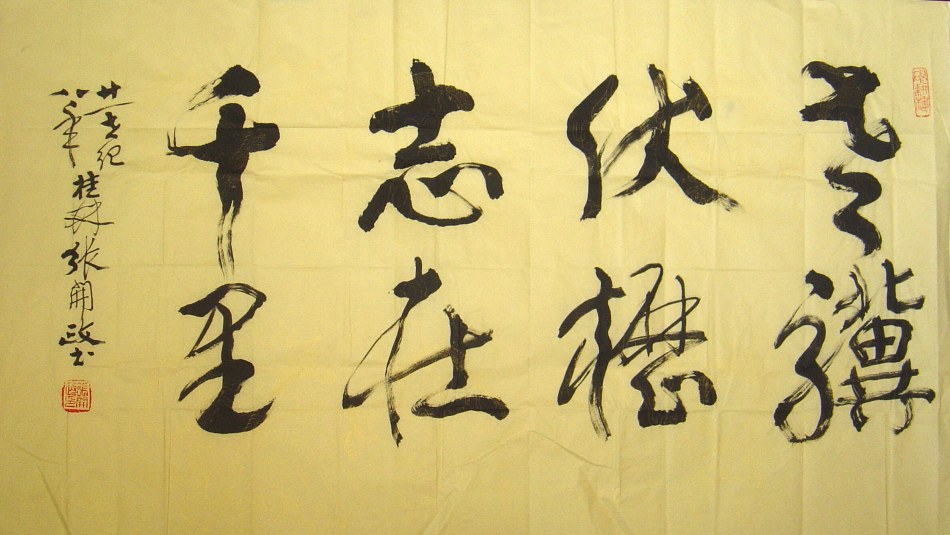 老驥
伏櫪
志在
千里
廿一世纪
八年
桂林张開政书